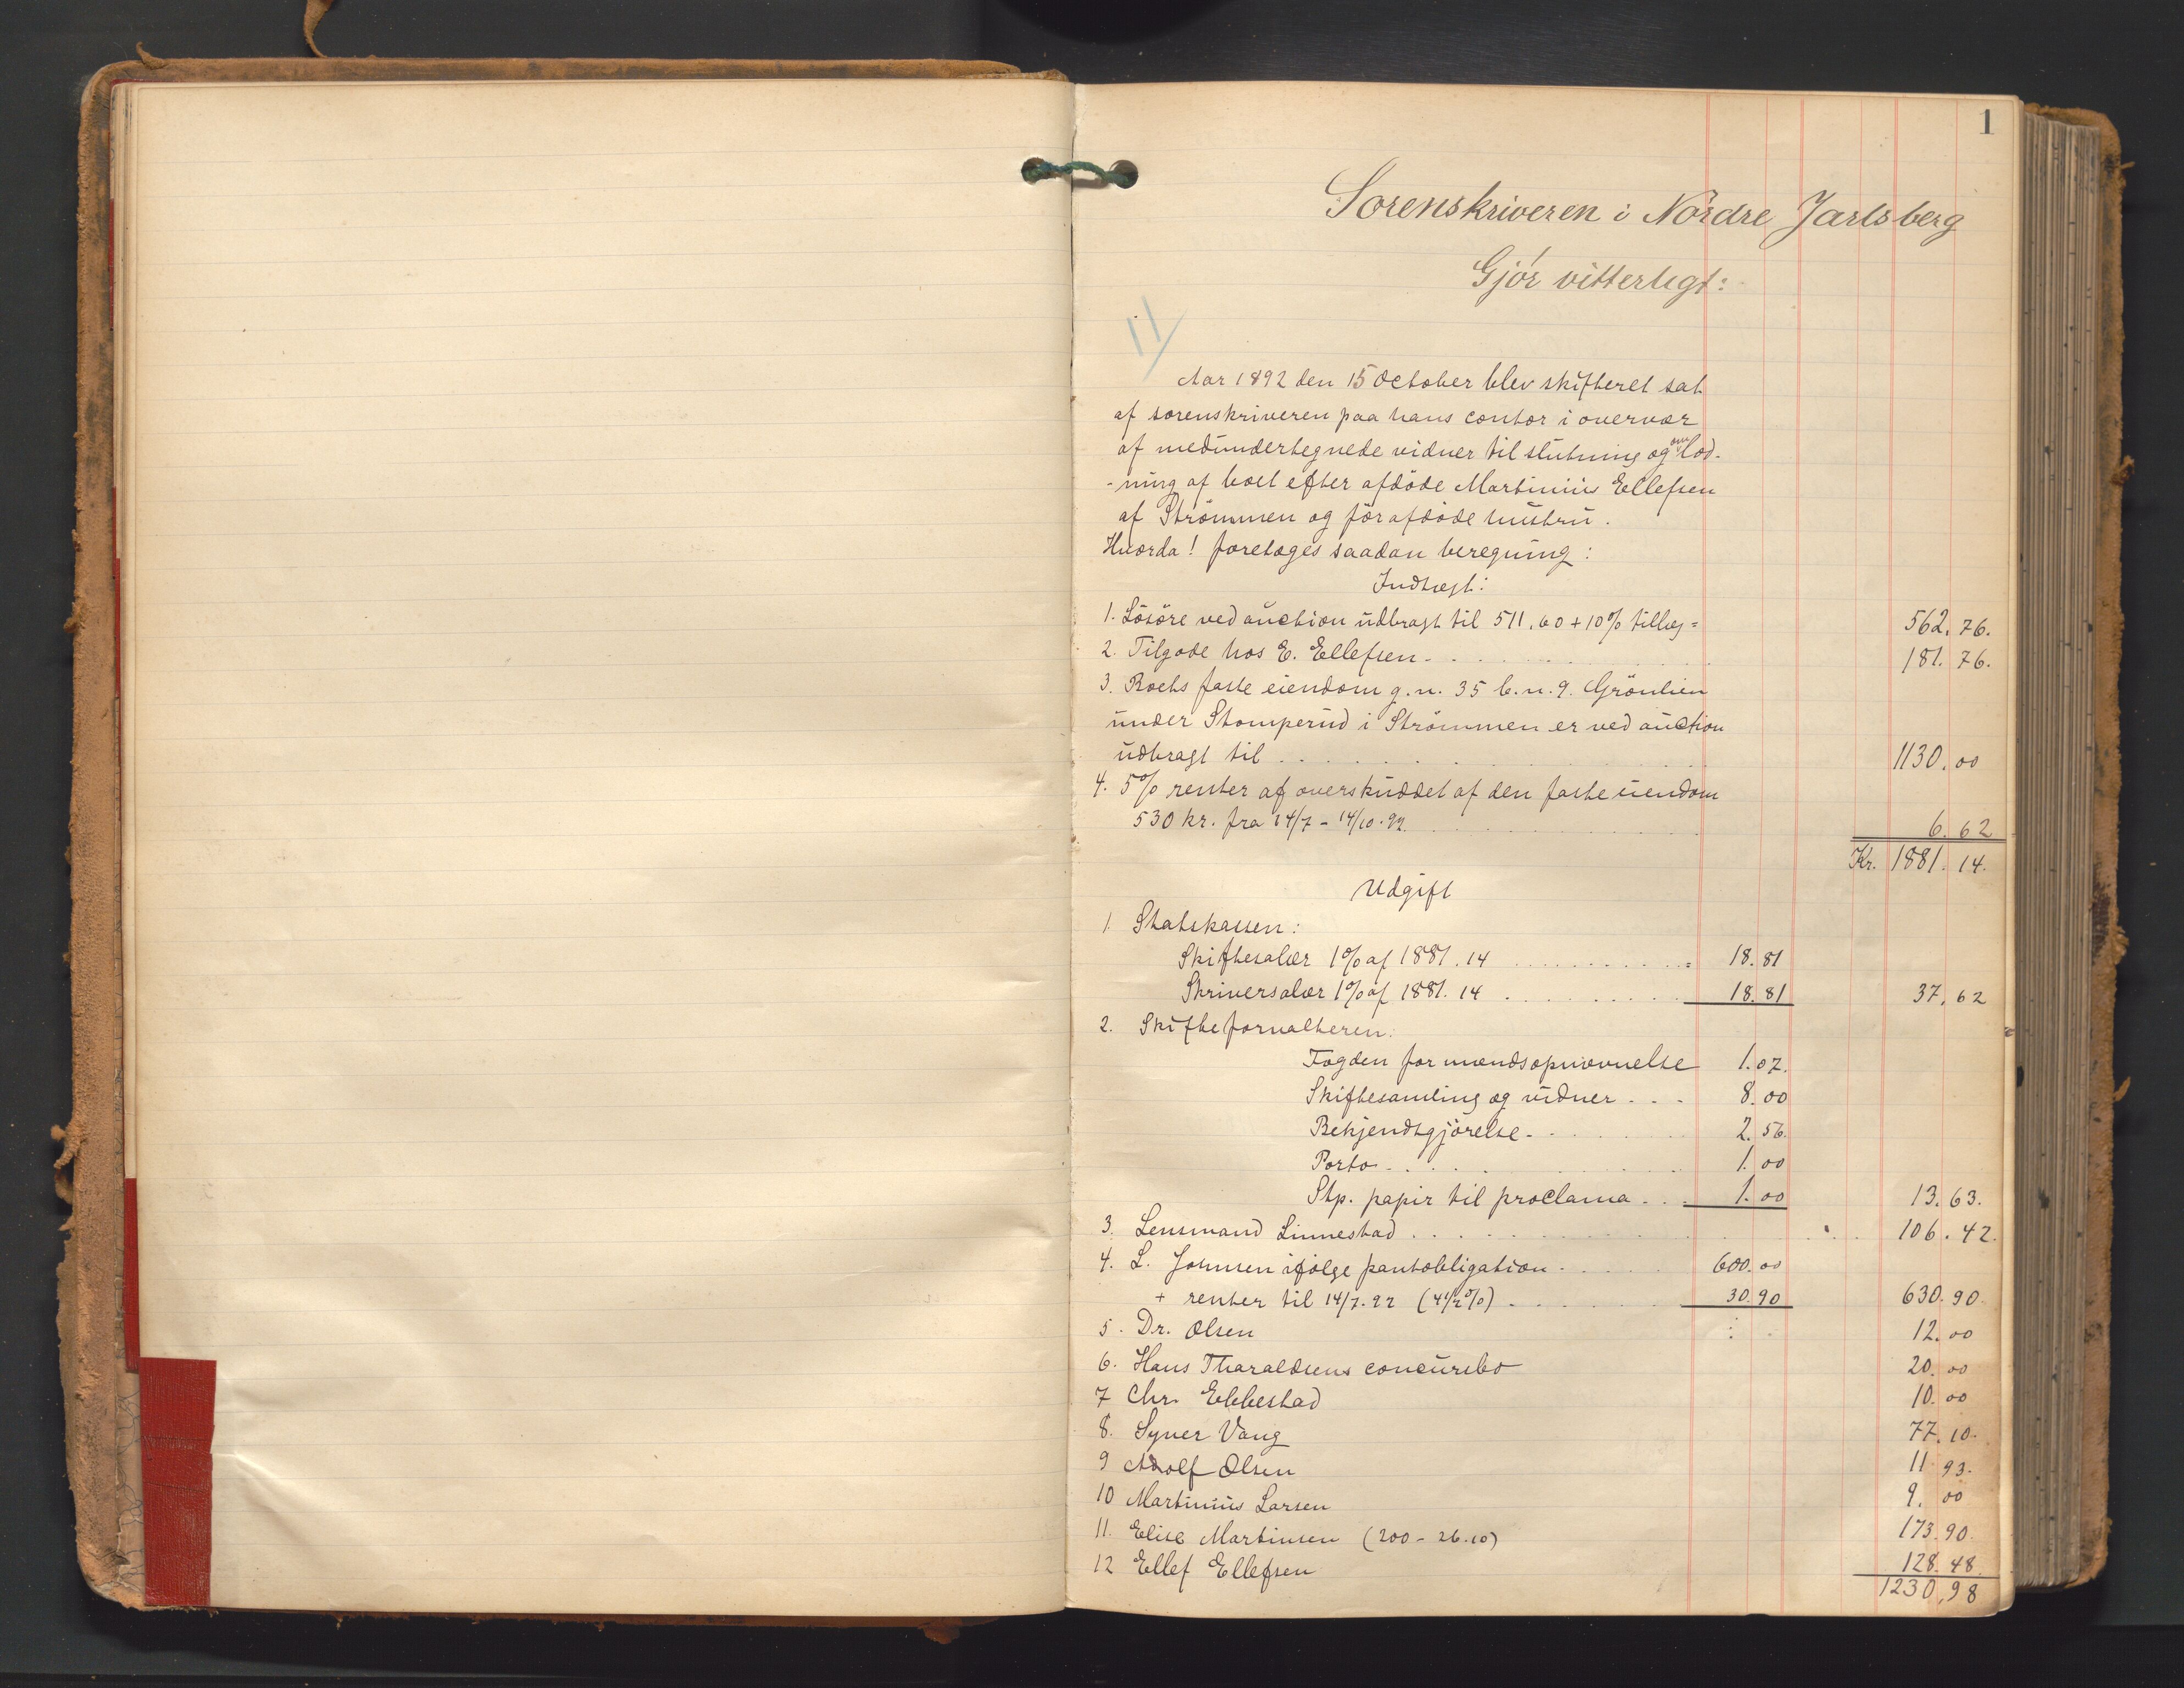 1
Sorenskriveren i Nordre Jarlsberg
Gjör vitterligt:
1/
Aar 1892 den 15 October blev skifteret sat
af sorenskriveren paa hans contor i overvær
af medundertegnede vidner til slutning og om lod-
-ning af boet efter afdöde Martinius Ellefsen
af Strömmen og förafdöde hustru.
Hvorda! foretoges saadan beregning:
Indtægt:
1. Lösöre ved auction udbragt til 511.60 + 10% tillæg = 562.76.
2. Tilgode hos E. Ellefsen 181.76.
3. Boets faste eiendom g.n. 35 b.n. 9. Grönlien
under Stomperud i Strömmen er ved auction
udbragt til 1130.00
4. 5% renter af overskuddet af den faste eiendom
530 kr. fra 14/7 - 14/10.92. 6.62
Kr. 1881.14.
Udgift
1 Statskassen:
Skiftesalær 1% af 1881.14 = 18.81
Skriversalær 1% af 1881.14 18.81 37.62
2. Skifteforvalteren:
Fogden for mændsopnævnelse 1.07.
Skiftesamling og vidner 8.00
Bekjendtgjörelse 2.56.
Porto 1.00
Stp. papir til proclama 1.00 13.63.
3. Lensmand Linnestad 106.42.
4. L. Johnsen ifölge pantobligation 600.00
+ renter til 14/7.92 (4 1/2%) 30.90 630.90.
5. Dr. Olsen 12.00
6. Hans Tharaldsens concursbo 20.00
7 Chr. Ebbestad 10.00
8. Syver Vang 77.10.
9 Adolf Olsen 11.93.
10 Martinius Larsen 9.00
11. Elise Martinsen (200 - 26.10) 173.90.
12 Ellef Ellefsen 128.48.
1230,98